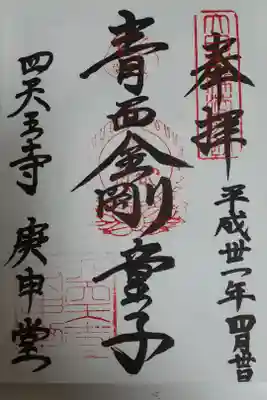 奉拝
平成卅一年四月廿日
青面金剛童子
四天王寺 庚申堂